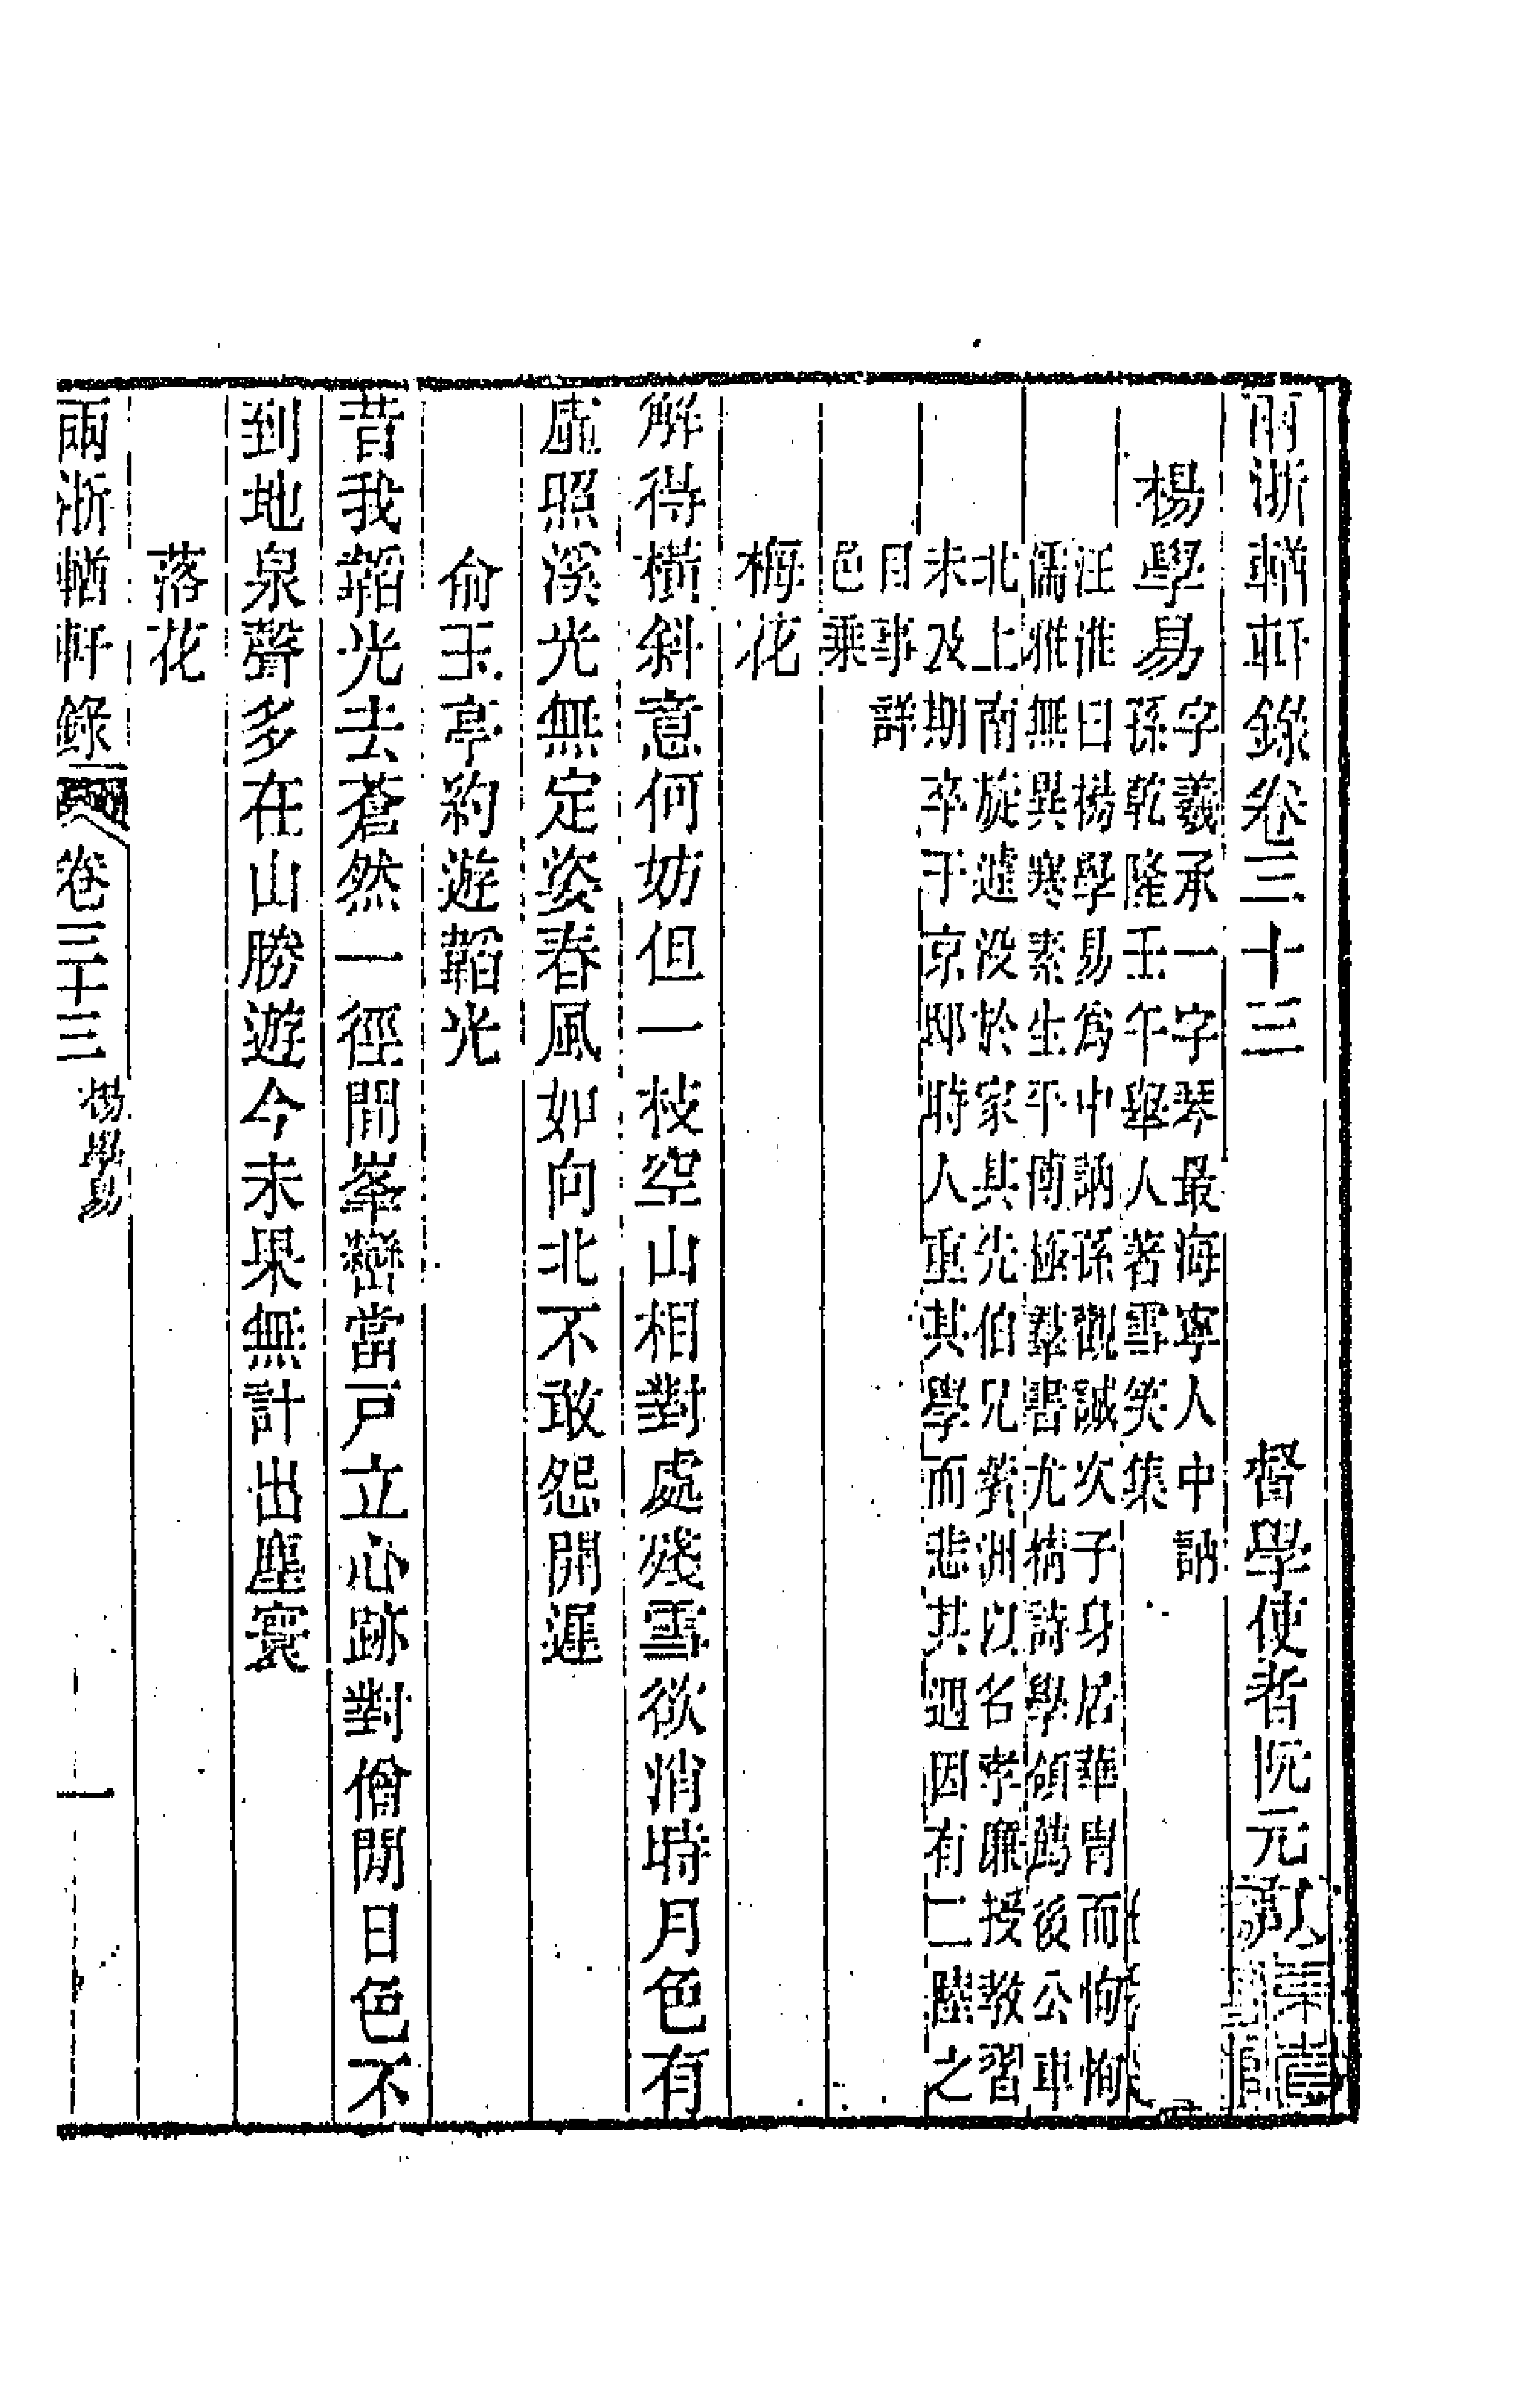 兩浙輶軒錄卷三十三 督學使者阮元
楊學易
字羲承一字琴最海寧人中訥
孫乾隆壬午舉人著雪笑集
汪淮曰楊學易爲中訥孫觀誠次子身居華冑而恂恂
儒雅無異寒素生平博極羣書尤精詩學領薦後公車
北上南旋遽没於家其先伯兄黃洲以名孝廉授教習
未及期卒于京邸時人重其學而悲其遇因有二陸之
目事詳
邑乗
梅花
解得橫斜意何妨但一枝空山相對處殘雪欲消時月色有
虛照溪光無定姿春風如向北不敢怨開遲
俞玉亭約遊韜光
昔我韜光去蒼然一徑閒峯巒當戸立心跡對僧閒日色不
到地泉聲多在山勝遊今未果無計出塵寰
落花
兩浙輶軒錄 卷三十三 楊學易 一